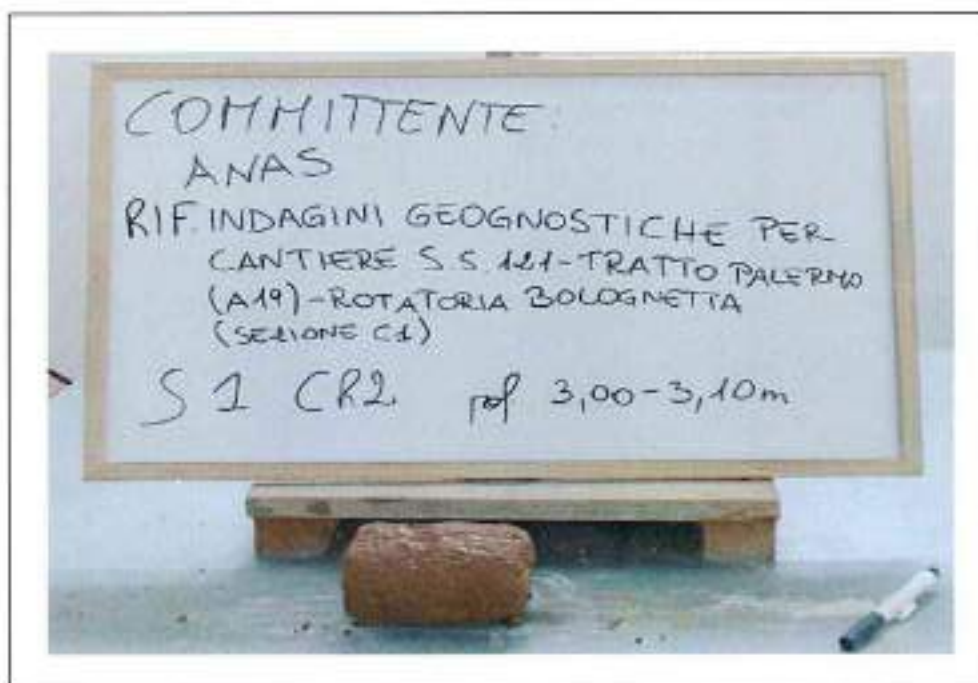 COMMITTENTE:
ANAS
RIF. INDAGINI GEOGNOSTICHE PER
CANTIERE S.S. 121-TRATTO PALERMO
(A19)-ROTATORIA BOLOGNETTA
(SEZIONE C1)
S1 CR2 prof 3,00-3,10m